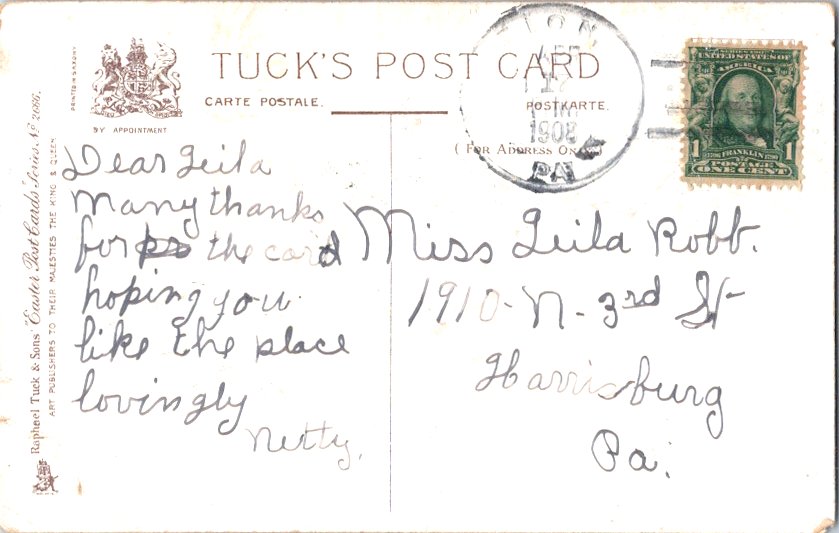 TUCK'S POST CARD
CARTE POSTALE. POSTKARTE.
BY APPOINTMENT
(FOR ADDRESS ONLY)
PRINTED IN SAXONY
Raphael Tuck & Sons' "Easter Post Cards" Series No.
ART PUBLISHERS TO THEIR MAJESTIES THE KING & QUEEN.
APR
17
1908
PA
UNITED STATES OF
AMERICA
1 FRANKLIN 1
POSTAGE
ONE CENT
Dear Leila
Many thanks
for the card
hoping you
like the place
lovingly
Netty.
Miss Leila Robb.
1910-N-3rd St
Harrisburg
Pa.